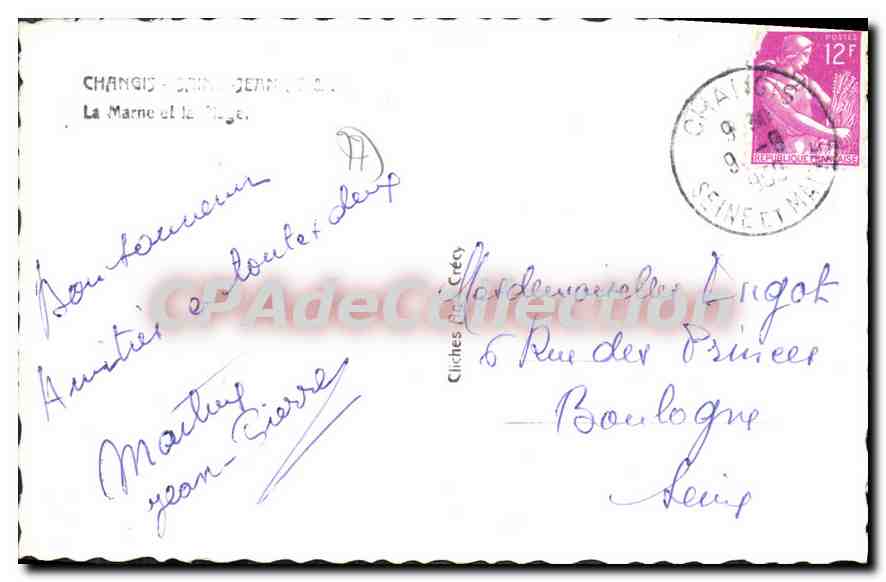 CHANGIS - SAINT-JEAN
La Marne et la Plage.
77
Bon souvenir
Amitiés à toutes deux
Jean-Pierre
Cliches Crécy
Mesdemoiselles Lugot
6 Rue des Princes
Boulogne
Seine
POSTES
12F
REPUBLIQUE FRANÇAISE
CHANGIS
SEINE ET MARNE
CPAdeCollection